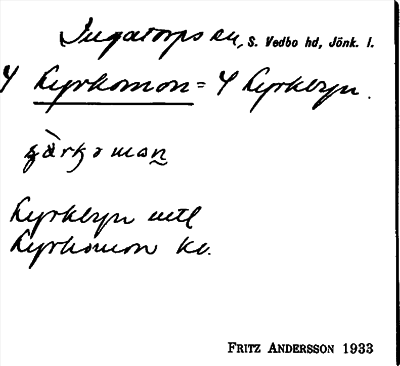 Ingatorps sn, S. Vedbo hd, Jönk. l.
Kyrkomon = Kyrkbyn.
Kyrkbyn uttl
Kyrkomon kv.
FRITZ ANDERSSON 1933